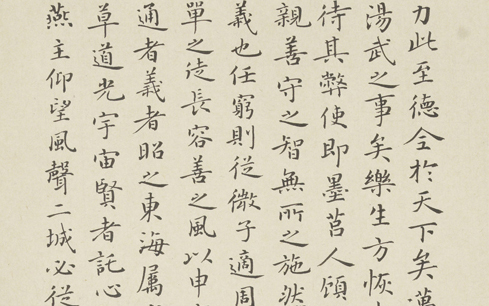 力此至德全於天下矣邁
湯武之事矣樂生方恢
待其弊使即墨莒人顧
親善守之智無所之施然
義也任窮則從微子適周
單之徒長容善之風以申
通者義者昭之東海屬
草道光宇宙賢者託心
燕主仰望風聲二城必從